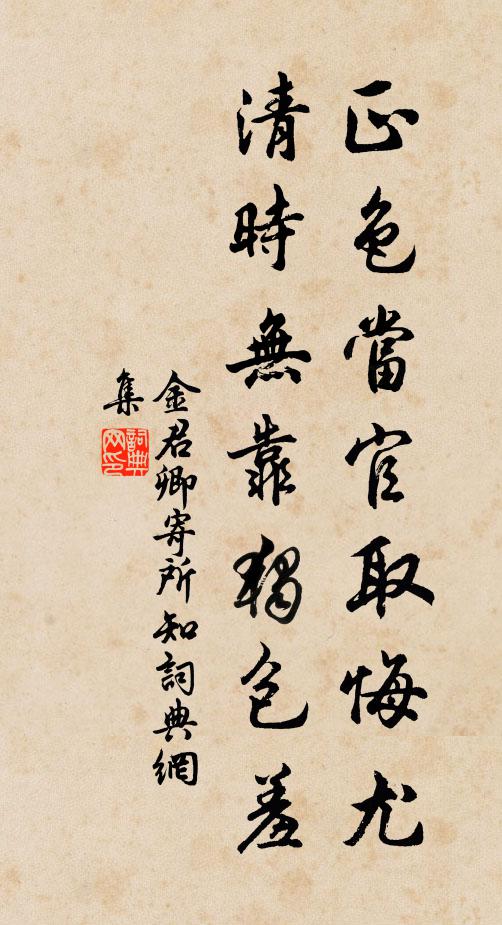 正色當官取悔尤
清時無靠獨包羞
金君卿寄所知詞典網
集
詞典
网印